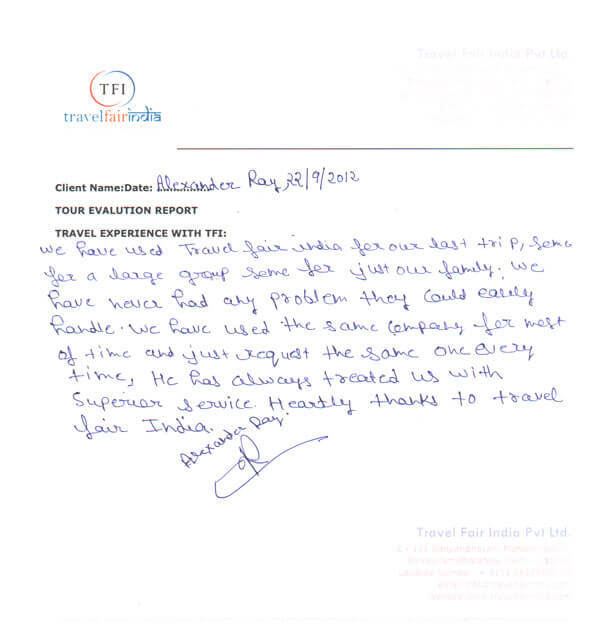 Travel Fair India Pvt Ltd.
TFI
travelfairindia
Client Name:Date: Alexander Ray 22/9/2012
TOUR EVALUTION REPORT
TRAVEL EXPERIENCE WITH TFI:
We have used Travel fair india for our last trip, some
for a large group some for just our family. We
have never had any problem they could easily
handle. We have used the same company for most
of time and just request the same one every
time, He has always treated us with
Superior service. Heartly thanks to travel
fair India.
Alexander Ray.
Travel Fair India Pvt Ltd.